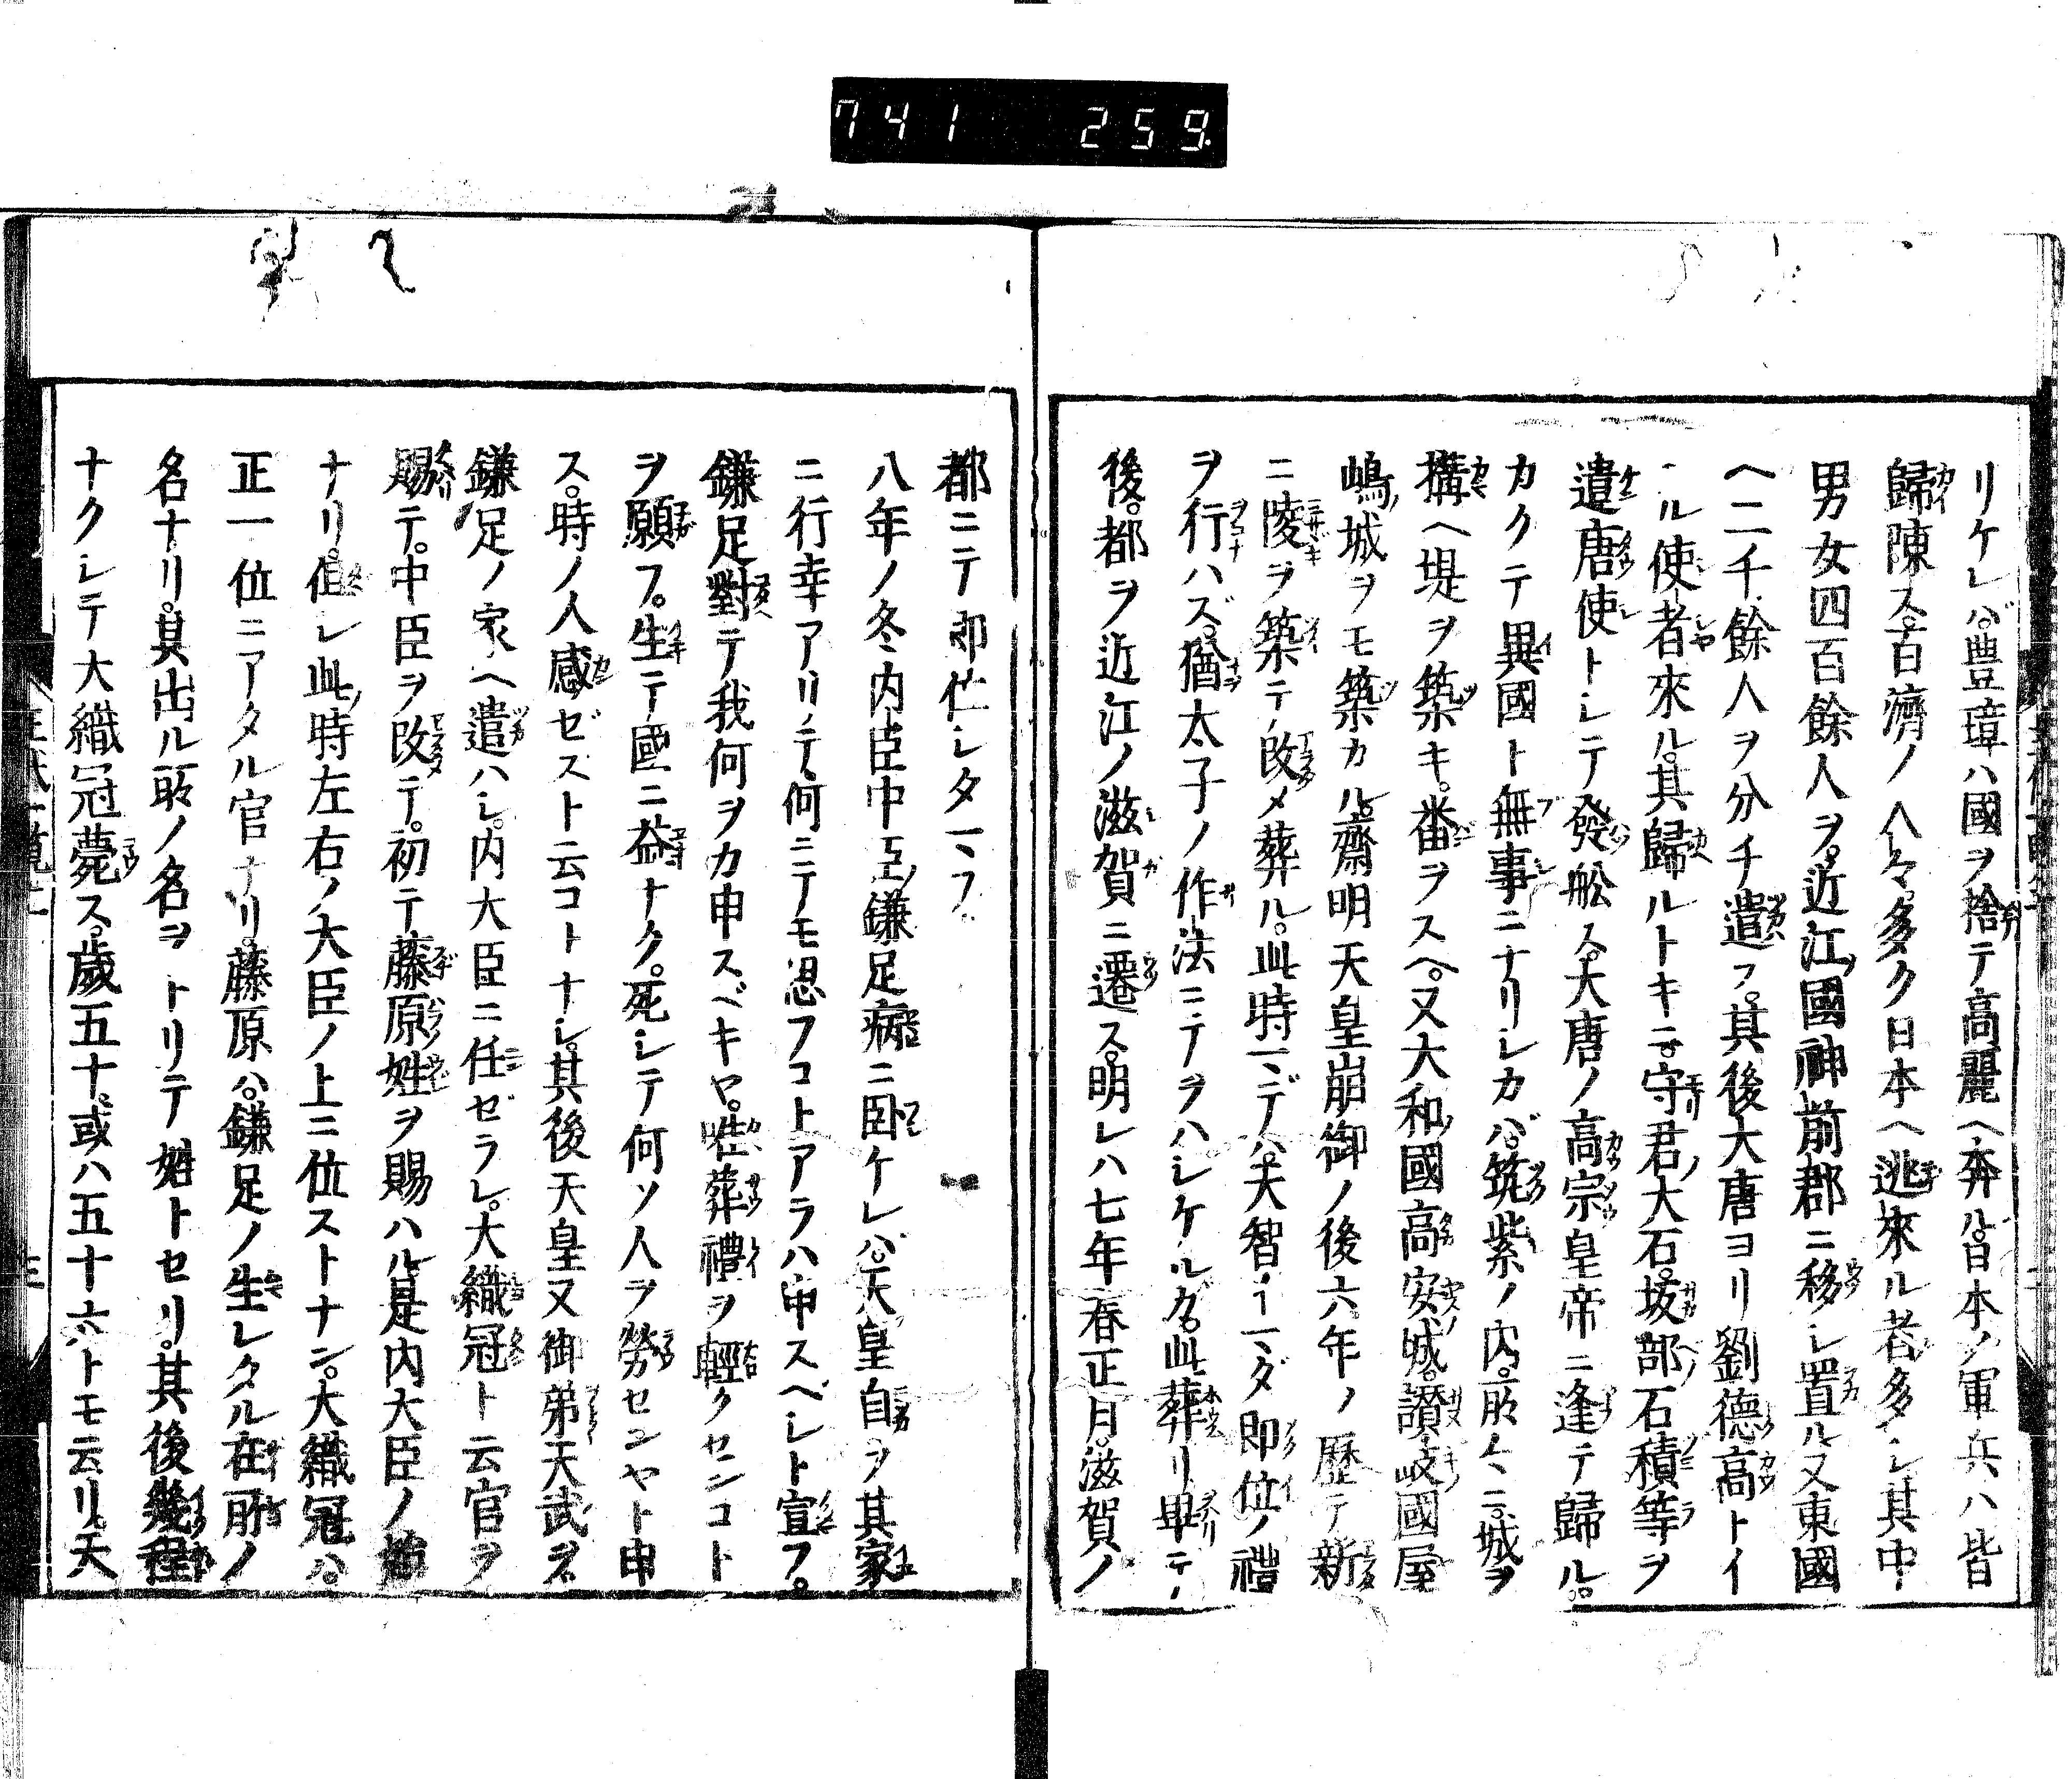 741 259
リケレバ。豊璋ハ國ヲ捨テ高麗ヘ奔ル。日本ノ軍兵ハ皆
歸陳ス。百濟ノ人々。多ク日本ヘ逃來ル者多シ。其中
男女四百餘人ヲ。近江國神前郡ニ移シ置ル。又東國
ヘ二千餘人ヲ分チ遣フ。其後大唐ヨリ劉德高トイ
ヘル使者來ル。其歸ルトキニ。守君大石。坂部石積等ヲ
遣唐使トシテ發舩ス。大唐ノ高宗皇帝ニ逢テ歸ル。
カクテ異國ト無事ニナリシカバ。筑紫ノ内。所々ニ。城ヲ
搆ヘ堤ヲ築キ。番ヲスヘ。又大和國高安城。讃岐國屋
嶋城ヲモ築カル。齋明天皇崩御ノ後六年ノ歴テ新
ニ陵ヲ築テ改メ葬ル。此時マデハ。天智イマダ即位ノ禮
ヲ行ハズ。猶太子ノ作法ニテヲハシケルガ。此葬リ畢テノ
後。都ヲ近江ノ滋賀ニ遷ス。明レハ七年春正月。滋賀ノ
都ニテ即位シタマフ。
八年ノ冬内臣中臣鎌足病ニ臥ケレバ。天皇自ラ其家
ニ行幸アリテ。何ニテモ思フコトアラハ申スベシト宣フ。
鎌足對テ我何ヲカ申スベキヤ。唯葬禮ヲ輕クセンコト
ヲ願フ。生テ國ニ益ナク。死シテ何ソ人ヲ勞センヤト申
ス。時ノ人感ゼスト云コトナシ。其後天皇又御弟天武ヲ
鎌足ノ家ヘ遣ハシ。内大臣ニ任ゼラレ。大織冠ト云官ヲ
賜テ。中臣ヲ改テ。初テ藤原姓ヲ賜ハル。是内大臣ノ始
ナリ。但シ此時左右ノ大臣ノ上ニ位ストナン。大織冠ハ。
正一位ニアタル官ナリ。藤原ハ。鎌足ノ生レタル在所ノ
名ナリ。其出ル所ノ名ヲトリテ姓トセリ。其後幾程
ナクシテ大織冠薨ス。歳五十。或ハ五十六トモ云リ。天